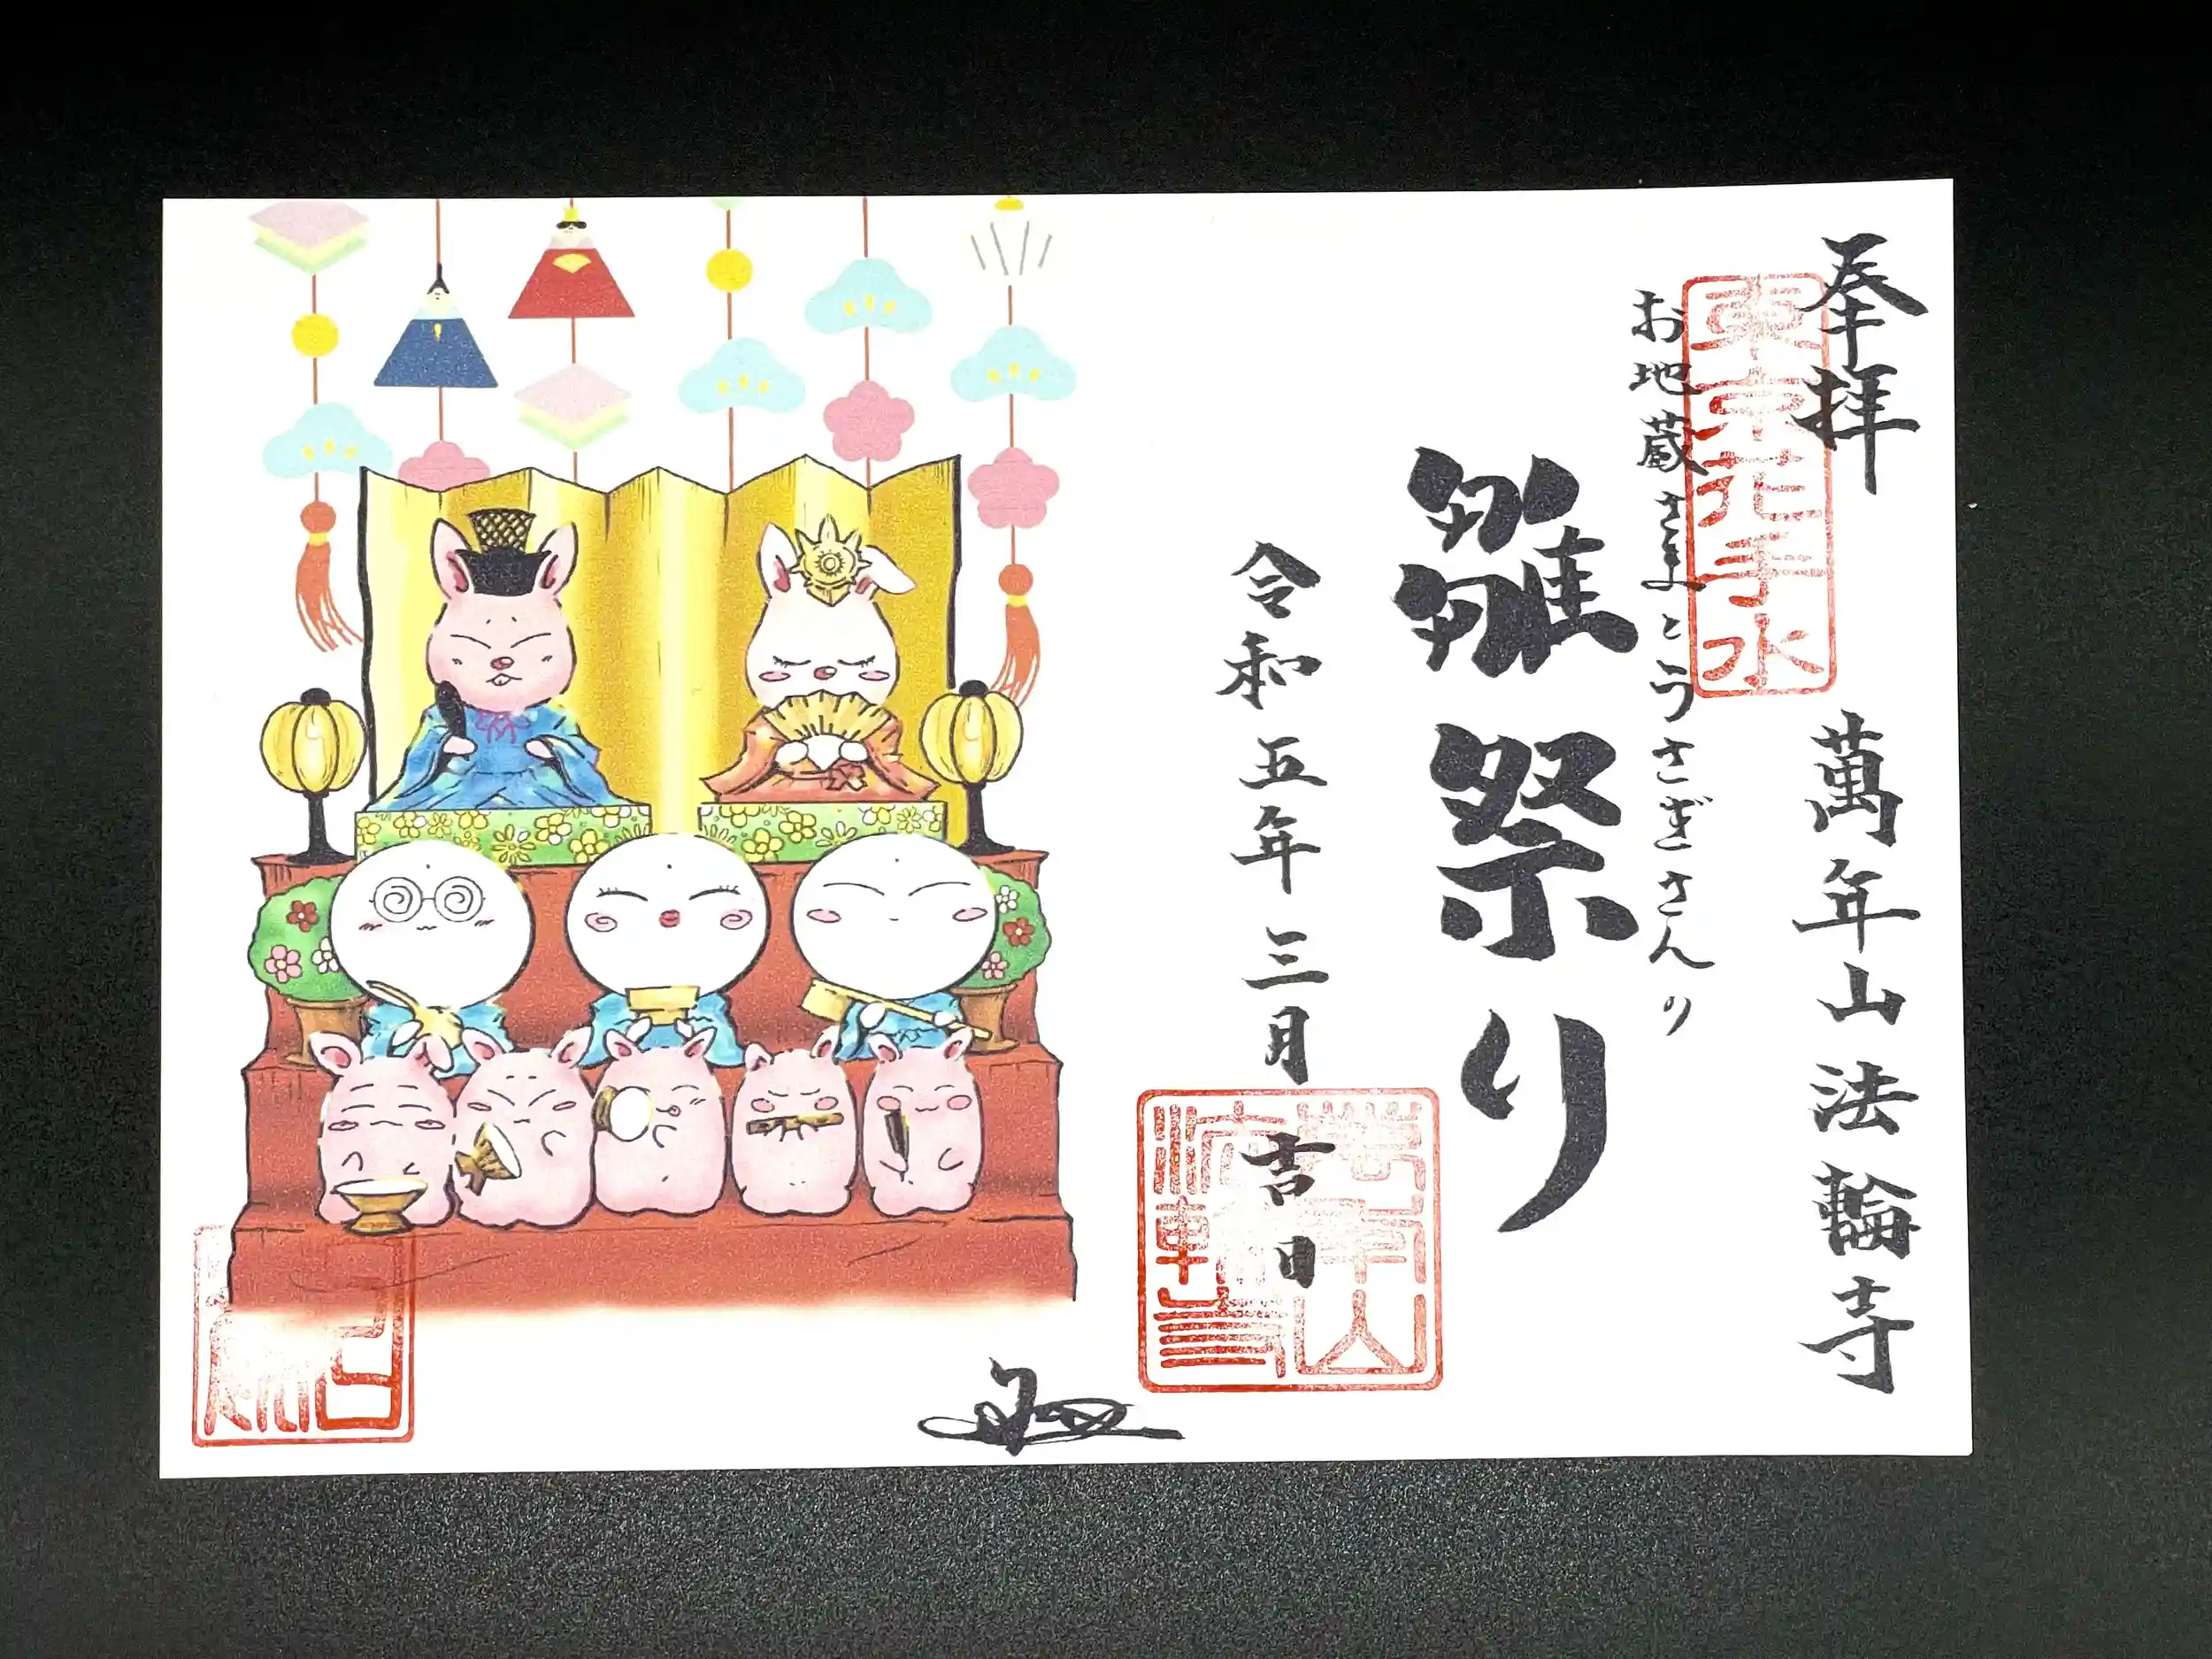 奉拝
萬年山法輪寺
東京花手水
お地蔵さまとうさぎさんの
雛祭り
令和五年三月吉日
萬年山
法輪寺